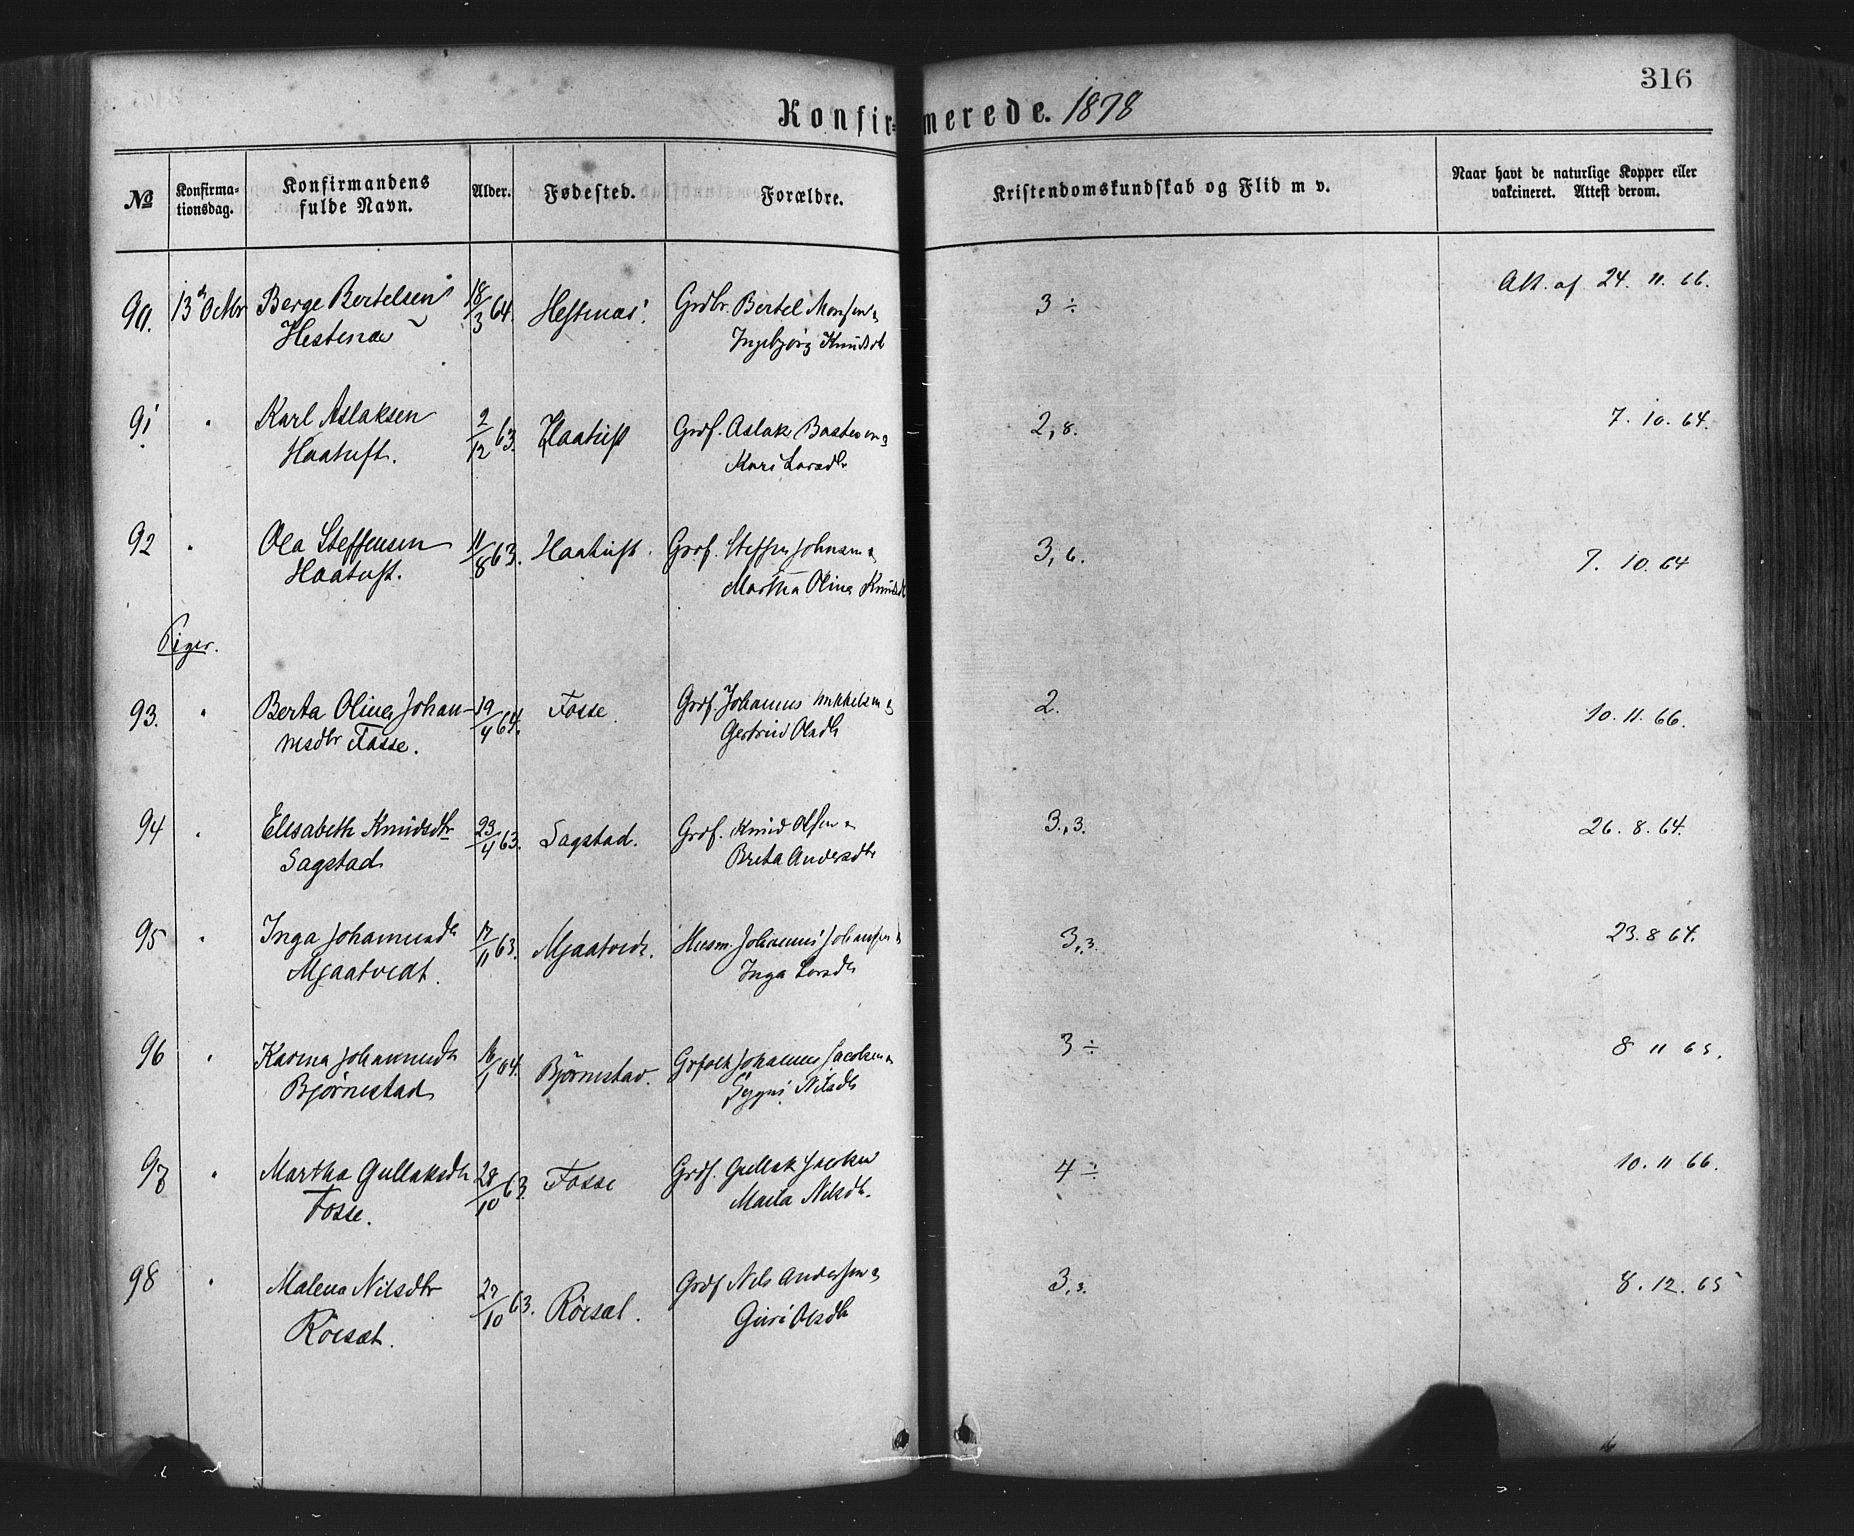 316
Konfirmerede. 1878
No
Konfirmationsdag.
Konfirmandens fulde Navn.
Alder.
Fødested.
Forældre.
Kristendomskundskab og Flid m v.
Naar havt de naturlige Kopper eller vakcineret. Attest derom.
90. 13de Octbr Berge Bertelsen 18/3 64. Hestenæs. Grdbr. Bertel Monsen & 3 ÷ Att. af 24. 11. 66.
Hestenæs Ingebjørg Knudsdtr
91. " Karl Aslaksen 2/12 63. Haatuft Grdf. Aslak Bastesen & 2,8. 7. 10. 64.
Haatuft. Kari Larsdtr
92 " Ola Steffensen 11/8 63. Haatuft. Grdf. Steffen Johnsen & 3,6. 7. 10. 64
Haatuft. Martha Olina Knudsdtr
Piger.
93. " Berta Olina Johan- 19/4 64. Fosse. Grdf. Johannes Mikkelsen & 2. 10. 11. 66.
nesdtr Fosse. Gertrud Olsdtr
94 " Elisabeth Knudsdtr 23/4 63. Sagstad. Grdf. Knud Olsen & 3,3. 26. 8. 64.
Sagstad Brita Andersdtr
95 " Inga Johannesdtr 17/11 63. Mjaatvedt. Husm. Johannes Johansen & 3,3. 23. 8 64.
Mjaatvedt. Inga Larsdtr
96 " Karina Johannesdtr 16/1 64. Bjørnestad. Grfolk Johannes Jacobsen & 3 ÷ 8 11 65.
Bjørnestad Nilsdtr
97 " Martha Gullaksdtr 28/10 63. Fosse Grdf. Gullak Jacobsen 4 ÷ 10. 11 66.
Fosse. Marta Nilsdtr.
98 " Malena Nilsdtr 27/10 63. Röesæt. Grdf Nils Andersen & 3,3. 8. 12. 65
Röesæt. Guri Olsdtr